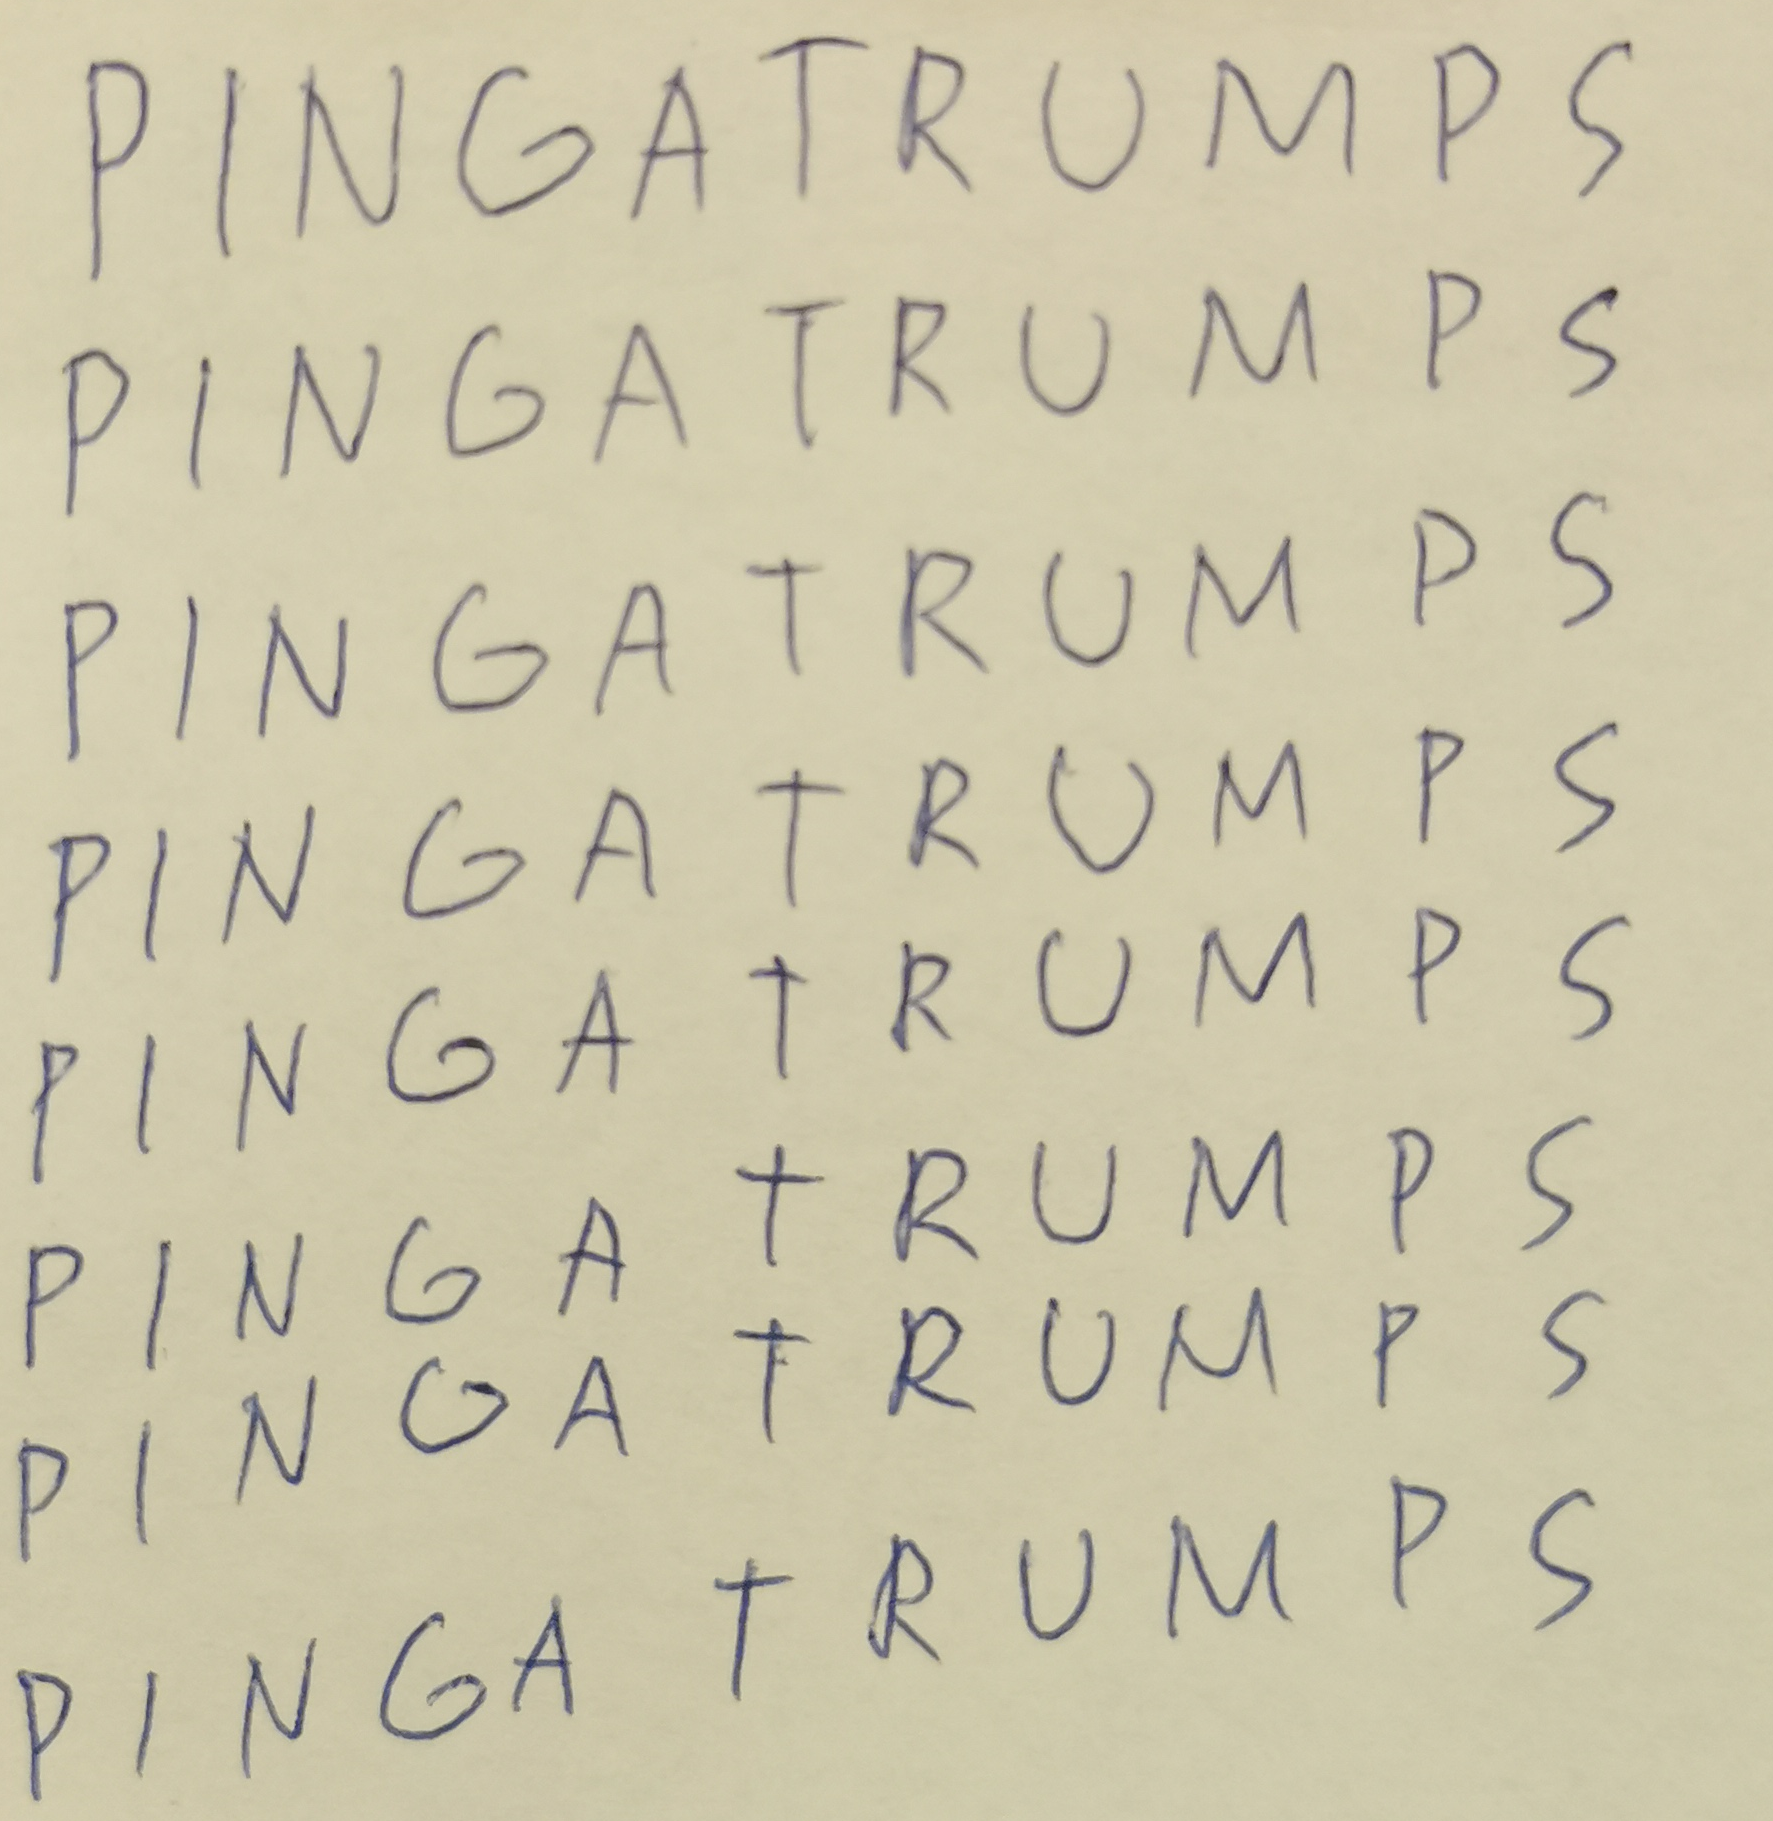 PINGATRUMPS
PINGATRUMPS
PINGATRUMPS
PINGATRUMPS
PINGATRUMPS
PINGATRUMPS
PINGATRUMPS
PINGATRUMPS